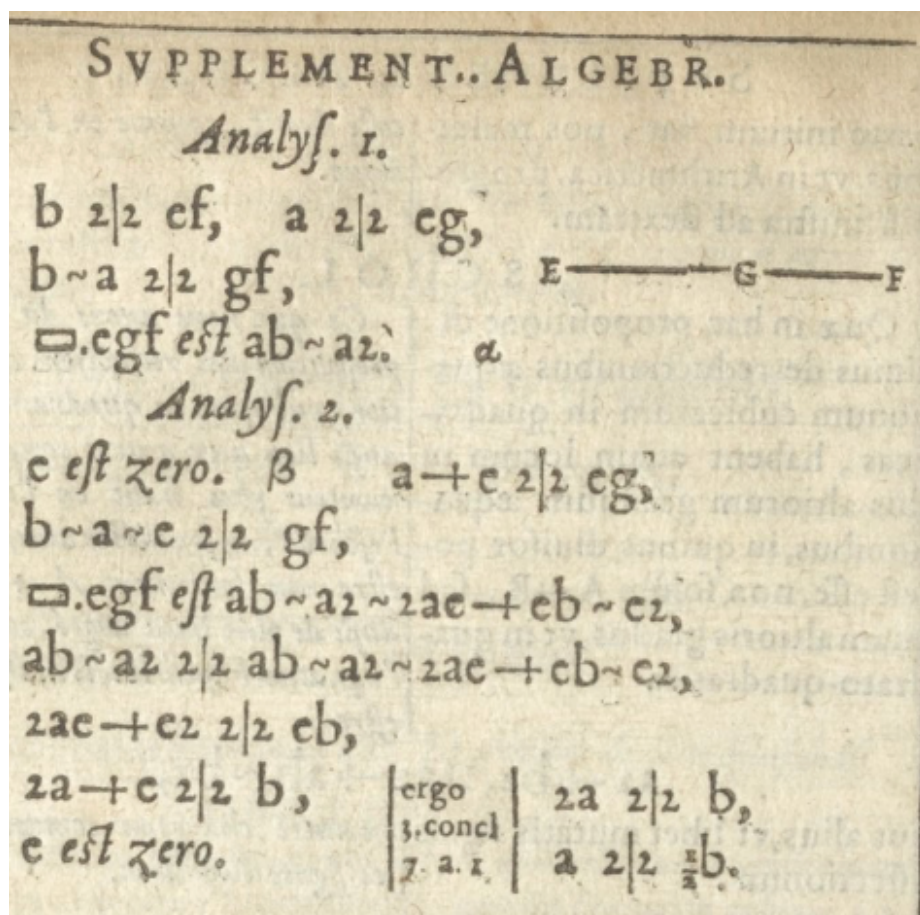 SVPPLEMENT.. ALGEBR.
Analyſ. 1.
b 2|2 ef, a 2|2 eg,
b~a 2|2 gf,
E G F
▭.egf eſt ab~a2. α
Analyſ. 2.
e eſt zero. β a+e 2|2 eg,
b~a~e 2|2 gf,
▭.egf eſt ab~a2~2ae+eb~e2,
ab~a2 2|2 ab~a2~2ae+eb~e2,
2ae+e2 2|2 eb,
2a+e 2|2 b, |ergo| 2a 2|2 b,
|3,concl|
e eſt zero. |7. a. 1| a 2|2 ½b.